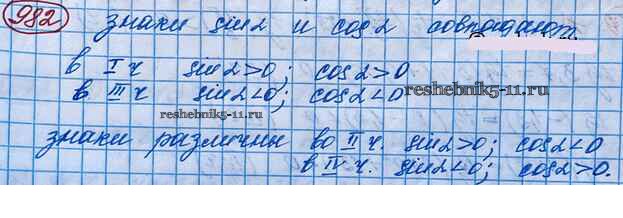 982 знаки sin α и cos α совпадают.
в I ч sin α > 0; cos α > 0
в III ч sin α < 0; cos α < 0
reshebnik5-11.ru
reshebnik5-11.ru
знаки различны во II ч. sin α > 0; cos α < 0
в IV ч. sin α < 0; cos α > 0.